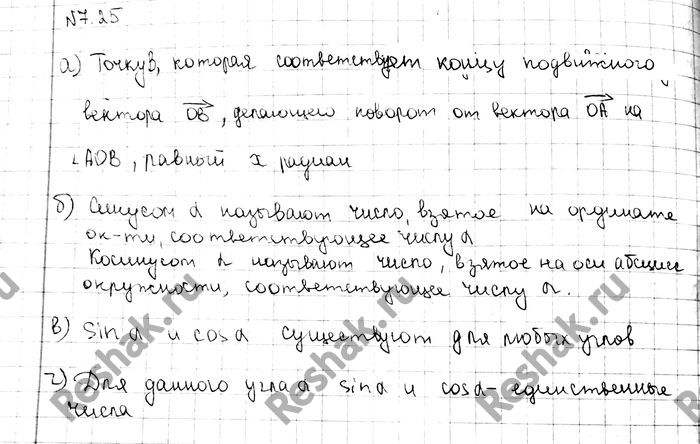 №7.25
а) Точку B, которая соответствует концу подвижного
вектора OB, делающего поворот от вектора OA на
∠AOB, равный x радиан
б) Синусом α называют число, взятое на ординате
ок-ти, соответствующее числу α
Косинусом α называют число, взятое на оси абсцисс
окружности, соответствующее числу α.
в) sin α и cos α существуют для любых углов
г) Для данного угла α sin α и cos α - единственные
числа
Reshak.ru
Reshak.ru
Reshak.ru